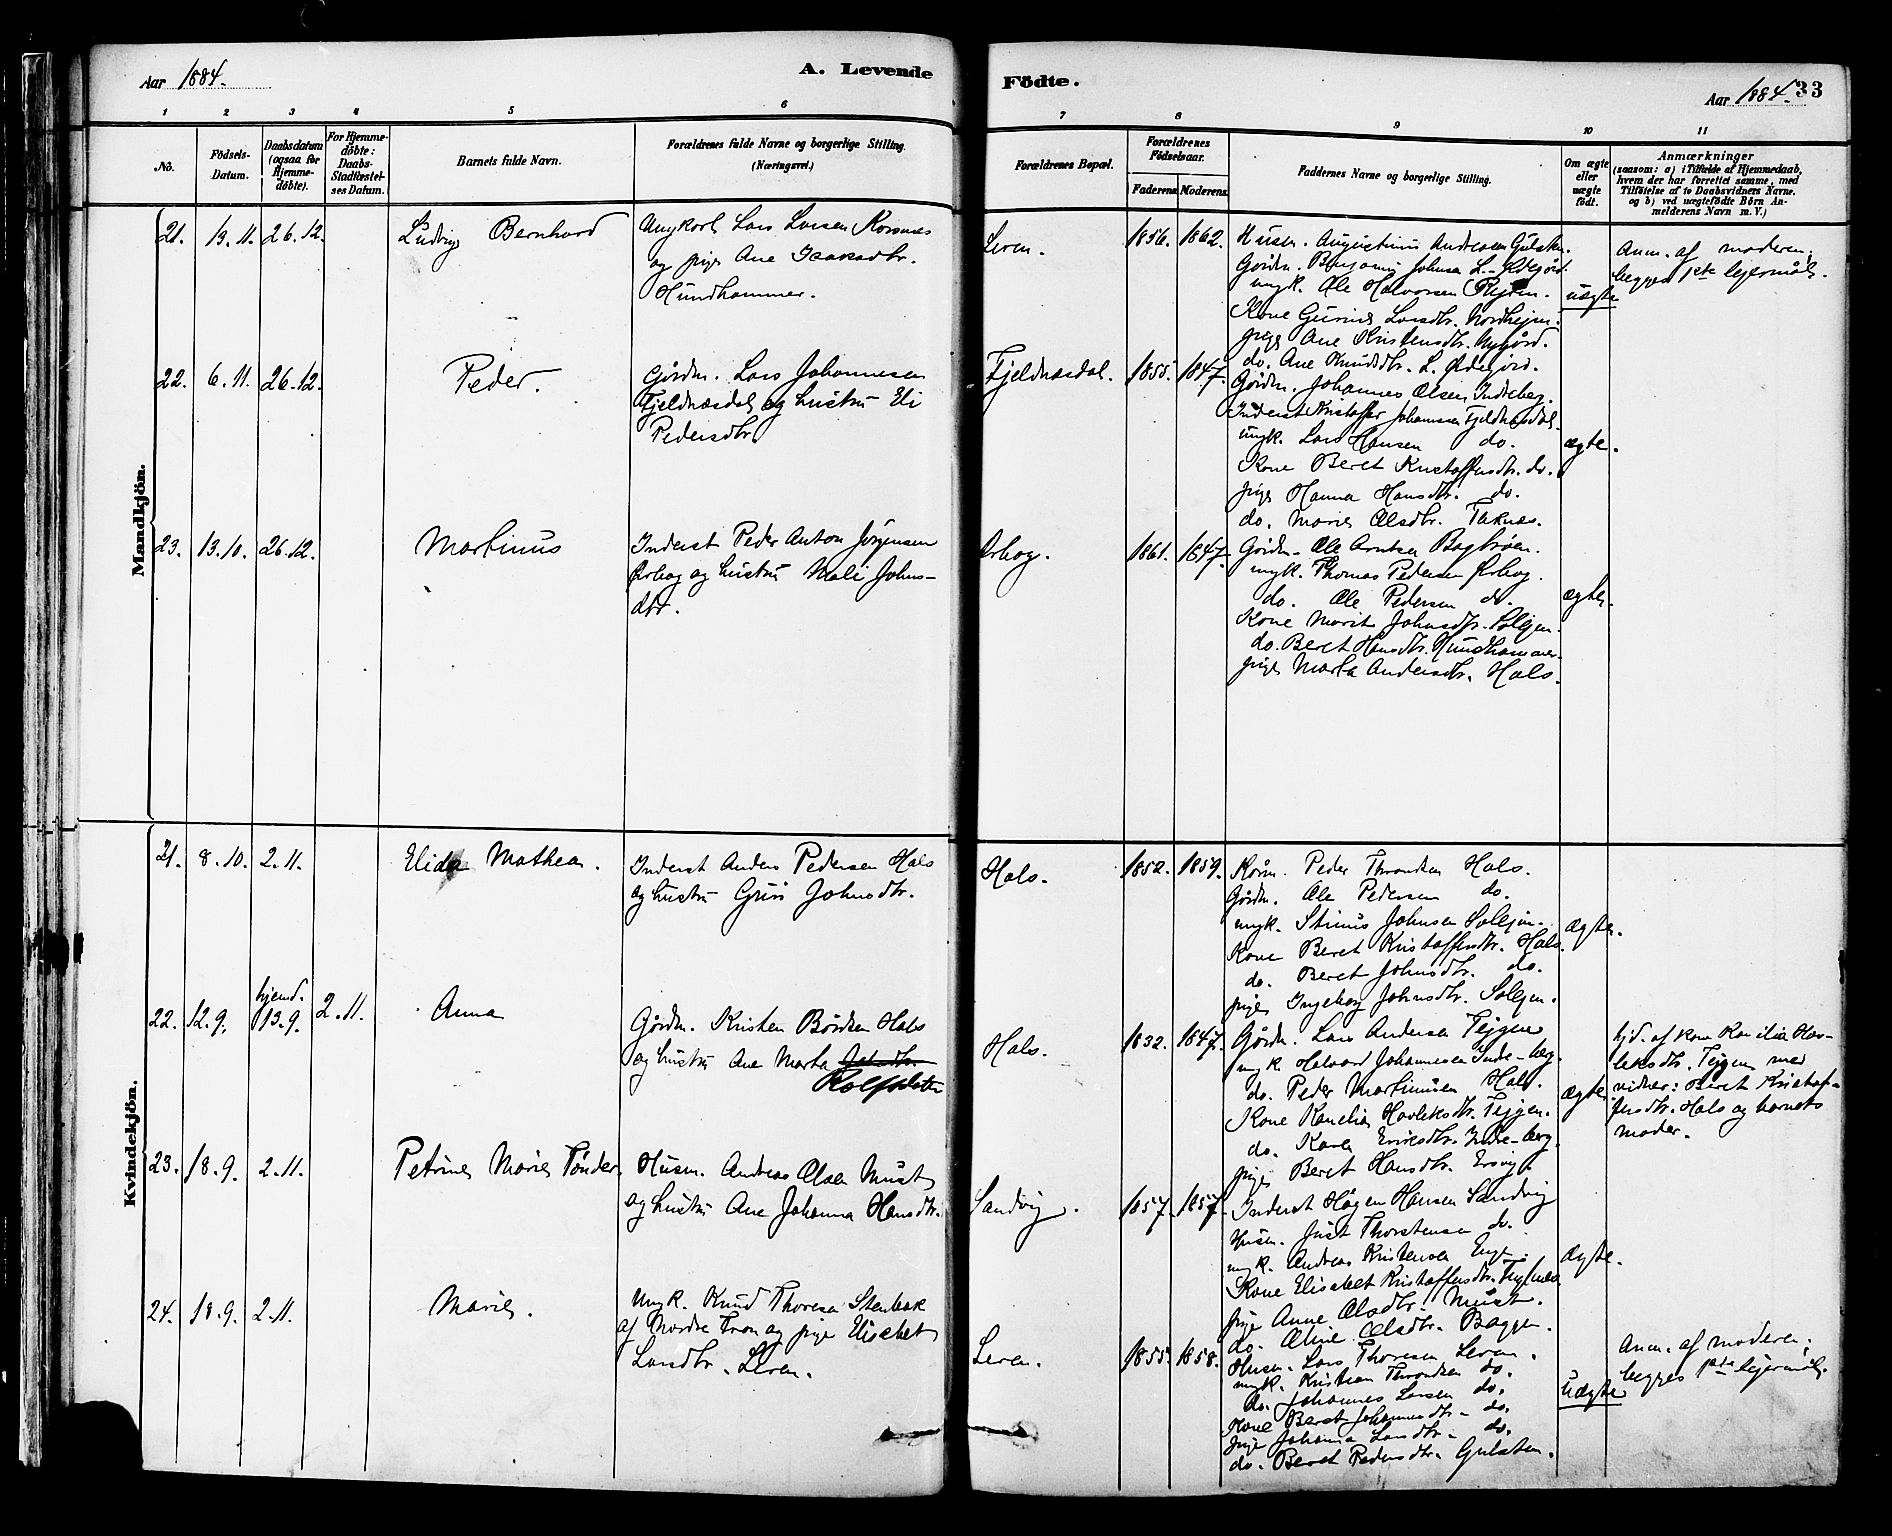 Aar 1884.
A. Levende
Födte.
Aar 1884.
33
1 2 3 4 5 6
7 8 9 10 11
No.
Födsels-
Datum.
Daabsdatum
(ogsaa for
Hjemme-
döbte).
For Hjemme-
döbte:
Daabs-
Stadfæstel-
ses Datum.
Barnets fulde Navn.
Forældrenes fulde Navne og borgerlige Stilling.
(Næringsvei.)
Forældrenes Bopæl.
Forældrenes
Födselsaar.
Faderens. Moderens.
Faddernes Navne og borgerlige Stilling.
Om ægte
eller
uægte
födt.
Anmærkninger
(saasom: a) i Tilfælde af Hjemmedaab,
hvem der har forrettet samme, med
Tilföielse af to Daabsvidners Navne,
og b) ved uægtefödte Börn An-
melderens Navn m. V.)
Mandkjön.
21. 13.11. 26.12.
Ludvig Bernhard
Ungkarl Lars Larsen Korsnes
og pige Ane Isaksdtr.
Hundhammer.
Leren.
1856. 1862.
Husm. Augustinus Andreasen Gulsten.
Gårdm. Benjamin Johnsen L. Ødegård.
ungk. Ole Halvorsen
Kone Gurine Larsdtr. Nordhejm.
pige Ane Kristensdtr. Nygård.
do. Ane Knudsdtr. L. Ødegård.
uægte
Anm. af moderen;
begges 1ste lejermål.
22. 6.11. 26.12.
Peder.
Gårdm. Lars Johannesen
Fjeldnæsdal og hustru Eli
Pedersdtr.
Fjeldnæsdal.
1855. 1847.
Gårdm. Johannes Olsen Indreberg.
Inderst Kristoffer Johannsen Fjeldnæsdal.
ungk. Lars Hansen do.
Kone Beret Kristoffersdtr. do.
pige Hanna Hansdtr. do.
do. Marie Olsdtr. Taknes.
ægte.
23. 13.10. 26.12.
Martinus
Inderst Peder Anton Jørgensen
Ørbog og hustru Mali Johns-
dtr.
Ørbog.
1861. 1847.
Gårdm. Ole Arntsen Bagbrøen.
ungk. Thomas Pedersen Ørbog.
do. Ole Pedersen do.
Kone Marit Johnsdtr. Solejm.
do. Beret Hansdtr. Hundhammer.
pige Marta Andersdtr. Hals.
ægte.
Kvindekjön.
21. 8.10. 2.11.
Elida Mathea.
Inderst Anders Pedersen Hals
og hustru Guri Johnsdtr.
Hals.
1852. 1859.
Kårm. Peder Throndsen Hals.
Gårdm. Ole Pedersen do.
ungk. Stinus Johnsen Solejm.
Kone Beret Kristoffersdtr. Hals.
do. Beret Johnsdtr. do.
pige Ingeborg Johnsdtr. Solejm.
ægte.
22. 12.9. hjemd. 13.9. 2.11.
Anna
Gårdm. Kristen Bårdsen Hals
og hustru Ane Marta
Rolfsdatter
Hals.
1832. 1847.
Gårdm. Lars Andersen Tejgen
ungk. Halvard Johannesen Indre-berg.
do. Peder Martinusen Hals.
Kone Kanelia Havleksdtr. Tejgen.
do. Karen Eriksdtr. Indre-berg.
pige Beret Hansdtr. Ersvig.
ægte
hjd. af kone Kanelia Hav-
leksdtr. Tejgen med
vidner: Beret Kristof-
fersdtr. Hals og barnets
moder.
23. 18.9. 2.11.
Petrine Marie Tønder.
Husm. Andreas Olsen Must
og hustru Ane Johanna Hansdtr.
Sandvig.
1857. 1857.
Inderst Hågen Hansen Sandvig
Husm. Just Thorstensen do.
ungk. Andreas Kristensen Enge.
Kone Elisabet Kristoffersdtr.
pige Anne Olsdtr. Must.
do. Oline Olsdtr. Baggen.
ægte.
24. 18.9. 2.11.
Marie.
Ungk. Knud Thoresen Stenbak
af Nordre Fron og pige Elisabet
Larsdtr. Leren.
Leren.
1855. 1858.
Husm. Lars Thoresen Leren.
ungk. Kristian Throndsen do.
do. Johannes Larsen do.
Kone Beret Johannesdtr. do.
pige Johanna Larsdtr. do.
do. Beret Pedersdtr. Gulsten.
uægte
Anm. af moderen;
begges 1ste lejermål.